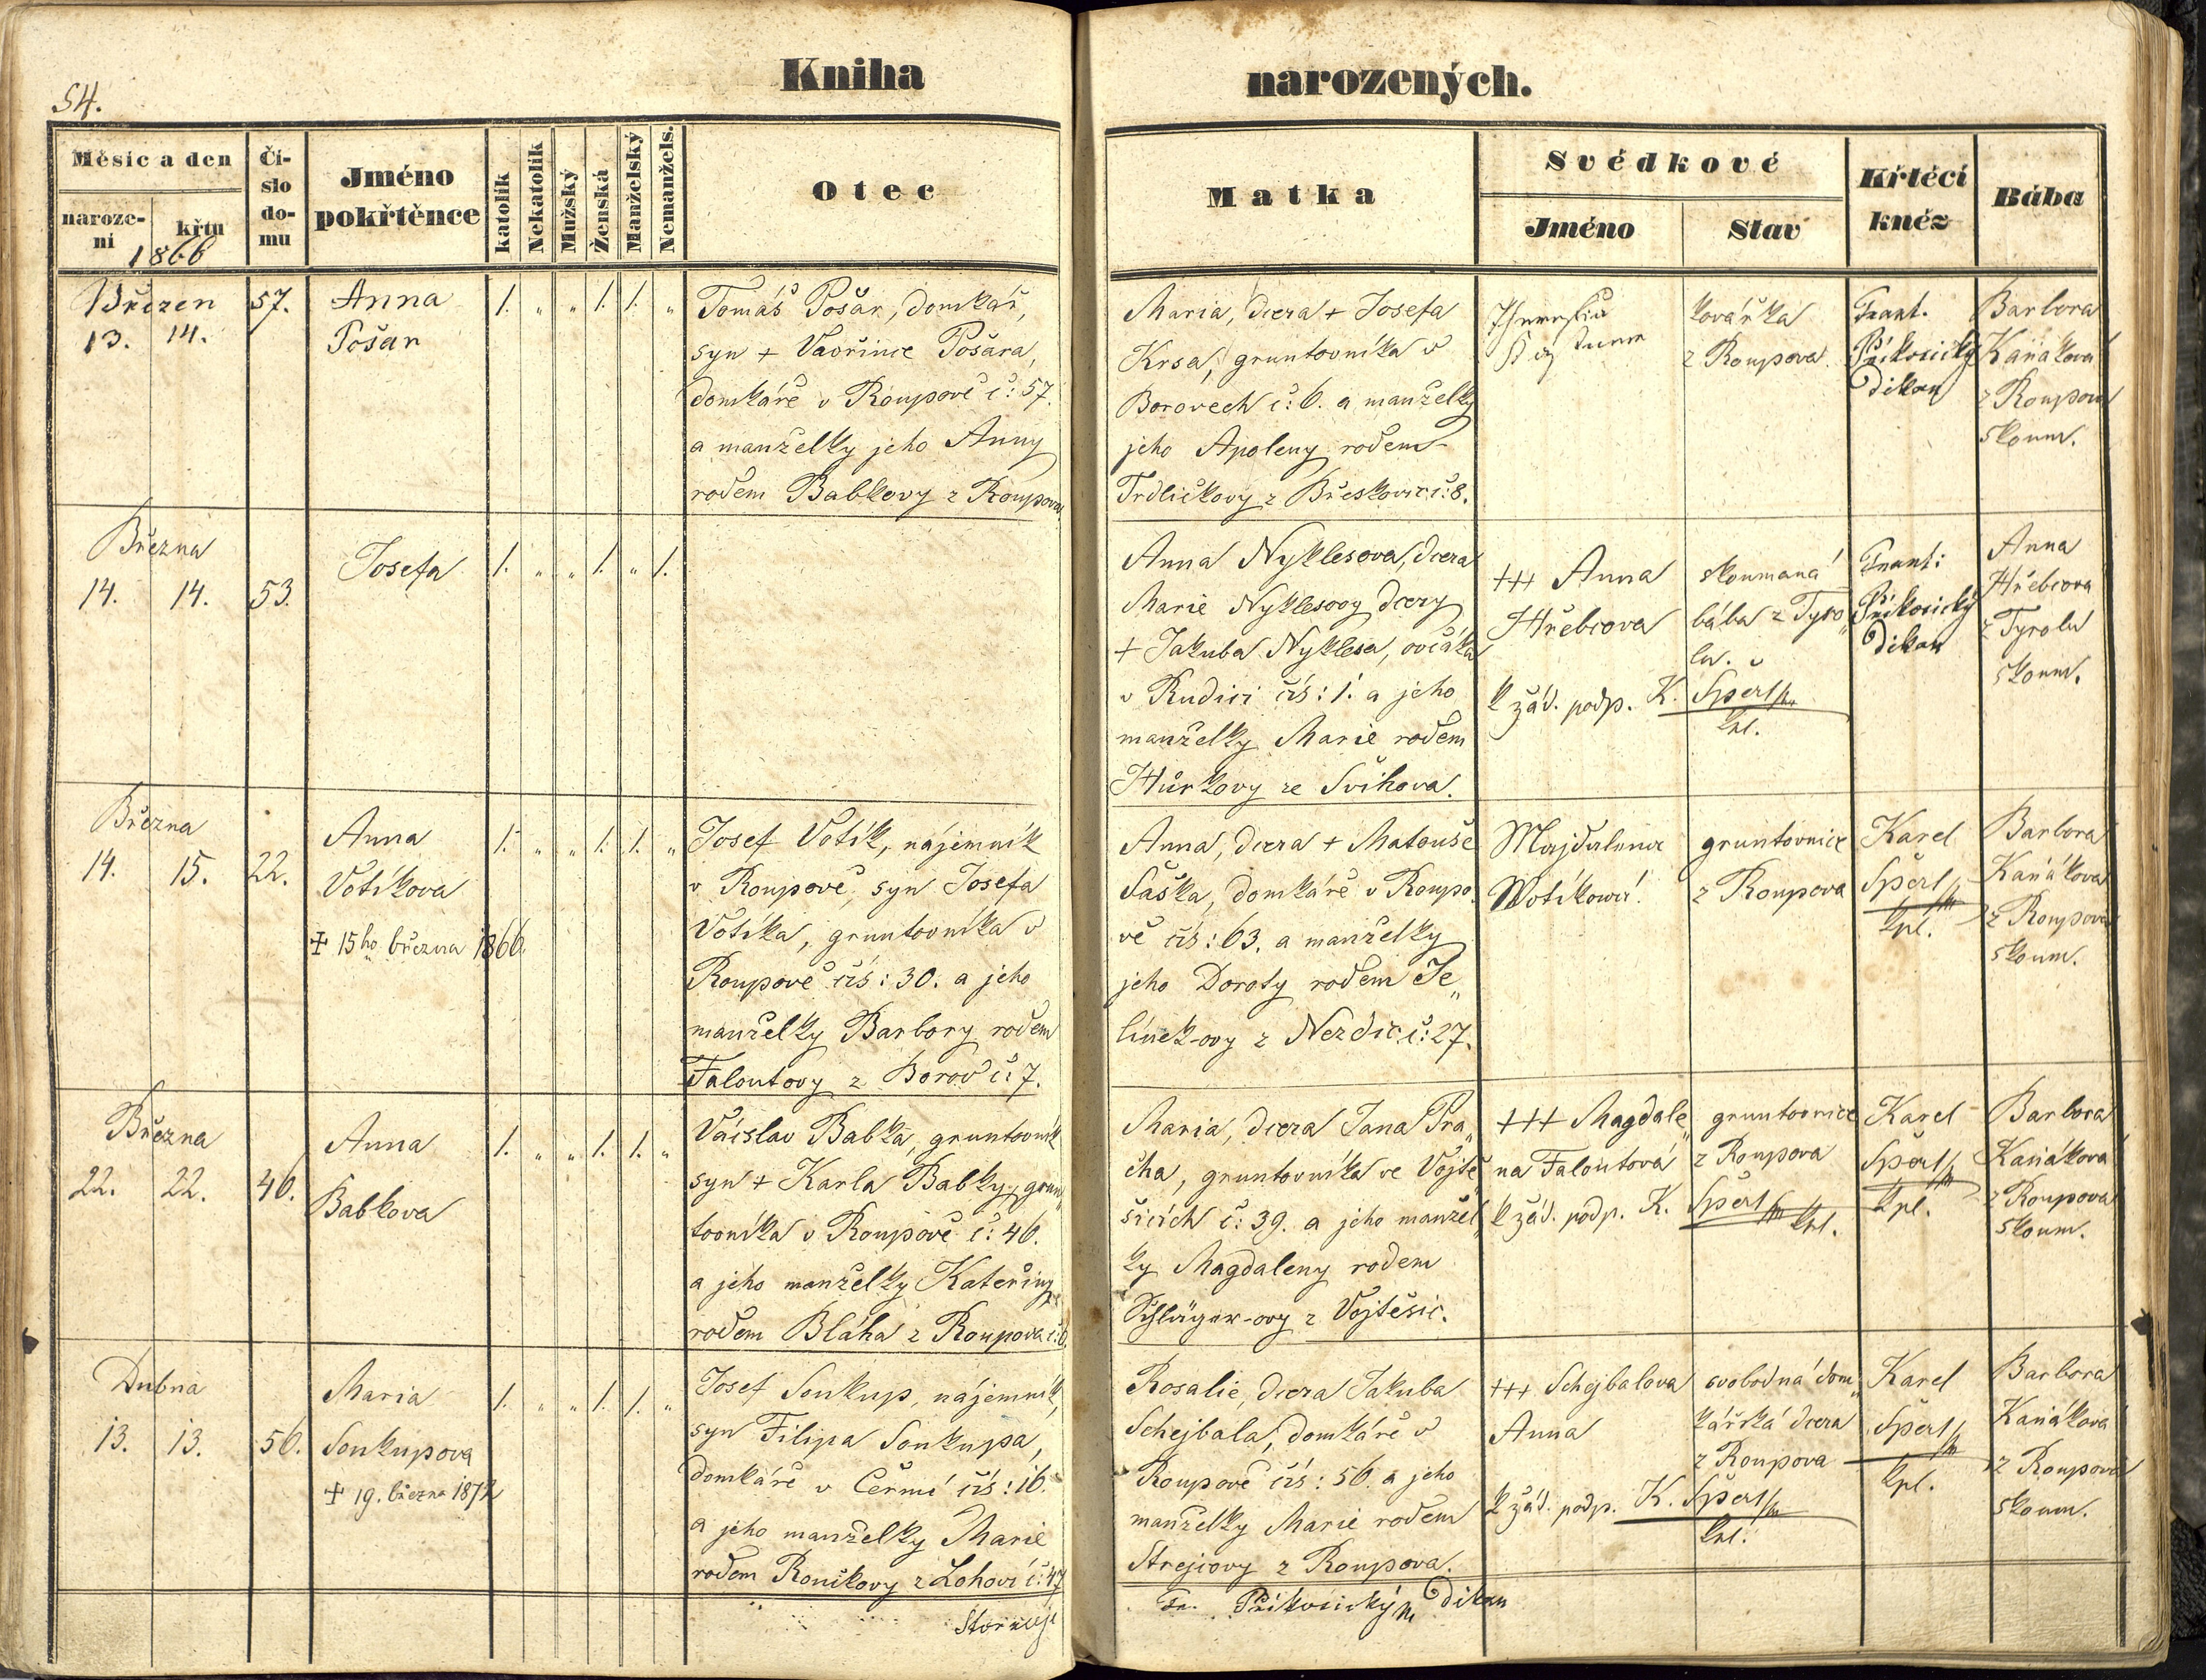 54.
Kniha narozených.
Měsíc a den
naroze-
ní
křtu
1866
Čí-
slo
do-
mu
Jméno
pokřtěnce
katolík
Nekatolík
Mužský
Ženská
Manželský
Nemanžels.
Otec
Matka
Svědkové
Jméno
Stav
Křtící
kněz
Bába
Březen
13. 14.
57.
Anna
Pošar
1. „ „ 1. 1. „
Tomáš Pošar, domkář,
syn + Vavřince Pošara,
domkáře v Roupově č: 57.
a manželky jeho Anny
rodem Babkovy z Roupova
Maria, dcera + Josefa
Krsa, gruntovníka v
Borovech č: 6. a manželky
jeho Apoleny rodem
Trdličkovy z Břeskovic č: 8.
kovářka
z Roupova.
Frant.
Přikosický
Děkan
Barbora
Kaňáková
z Roupova
skoum.
Března
14. 14.
53.
Josefa
1. „ „ 1. „ 1.
Anna Nyklesova, dcera
Marie Nyklesovy dcery
+ Jakuba Nyklesa, ovčáka
v Rudici čís: 1. a jeho
manželky Marie rodem
Hůrkovy ze Švihova.
+++ Anna
Hřebcova
k žád. podp. K. Šperl
kpl.
skoumaná
bába z Tyro„
lu.
Frant:
Přikosický
Děkan
Anna
Hřebcova
z Tyrolu
skoum.
Března
14. 15.
22.
Anna
Votíkova
+ 15ho března 1866.
1. „ „ 1. 1. „
Josef Votík, nájemník
v Roupově, syn Josefa
Votíka, gruntovníka v
Roupově čís: 30. a jeho
manželky Barbory rodem
Faloutovy z Borov č: 7.
Anna, dcera + Matouše
Saska, domkáře v Roupo„
vě čís: 63. a manželky
jeho Doroty rodem Je„
línek-ovy z Nezdic č: 27.
Majdalena
Wotíkowá
gruntovnice
z Roupova
Karel
Šperl
kpl.
Barbora
Kaňáková
z Roupova
skoum.
Března
22. 22.
46.
Anna
Babkova
1. „ „ 1. 1. „
Václav Babka, gruntovník
syn + Karla Babky, grun„
tovníka v Roupově č: 46.
a jeho manželky Kateřiny
rodem Bláha z Roupova č: 6.
Maria, dcera Jana Pra„
cha, gruntovníka ve Vojtě„
šicích č: 39. a jeho manžel„
ky Magdaleny rodem
Schläger-ovy z Vojtěšic.
+++ Magdale„
na Faloutová
k žád. podp. K. Šperl kpl.
gruntovnice
z Roupova
Karel
Šperl
kpl.
Barbora
Kaňáková
z Roupova
skoum.
Dubna
13. 13.
56.
Maria
Soukupova
+ 19. března 1872
1. „ „ 1. 1. „
Josef Soukup, nájemník,
syn Filipa Soukupa,
domkáře v Čermé čís: 16.
a jeho manželky Marie
rodem Roníkovy z Lohoví č: 47
Rosalie, dcera Jakuba
Schejbala, domkáře v
Roupově čís: 56. a jeho
manželky Marie rodem
Strejcovy z Roupova.
+++ Schejbalova
Anna
k žád. podp. K. Šperl
kpl.
svobodná dom„
kářská dcera
z Roupova
Karel
Šperl
kpl.
Barbora
Kaňáková
z Roupova
skoum.
Fr. Přikosický Děkan